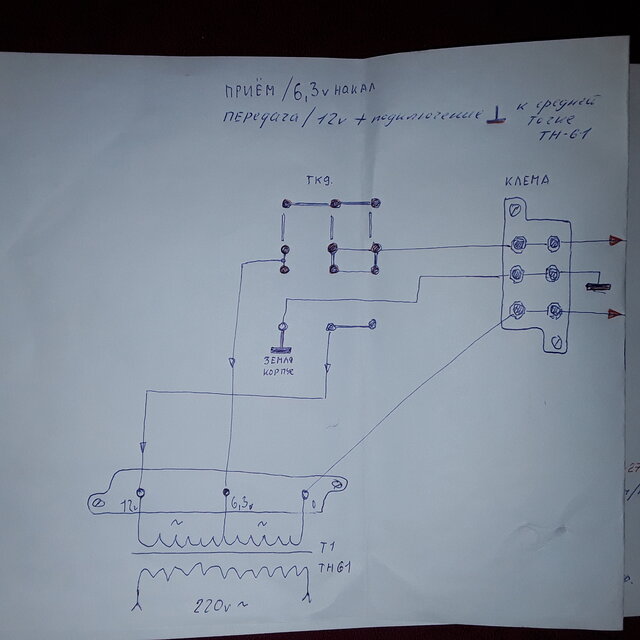 ПРИЁМ / 6,3v НАКАЛ
ПЕРЕДАЧА / 12v + подключение ⊥ к средней
точке
ТН-61
ТКД.
КЛЕМА
ЗЕМЛЯ
КОРПУС
12v
6,3v
0
~ ~
Т1
ТН61
220v ~
27